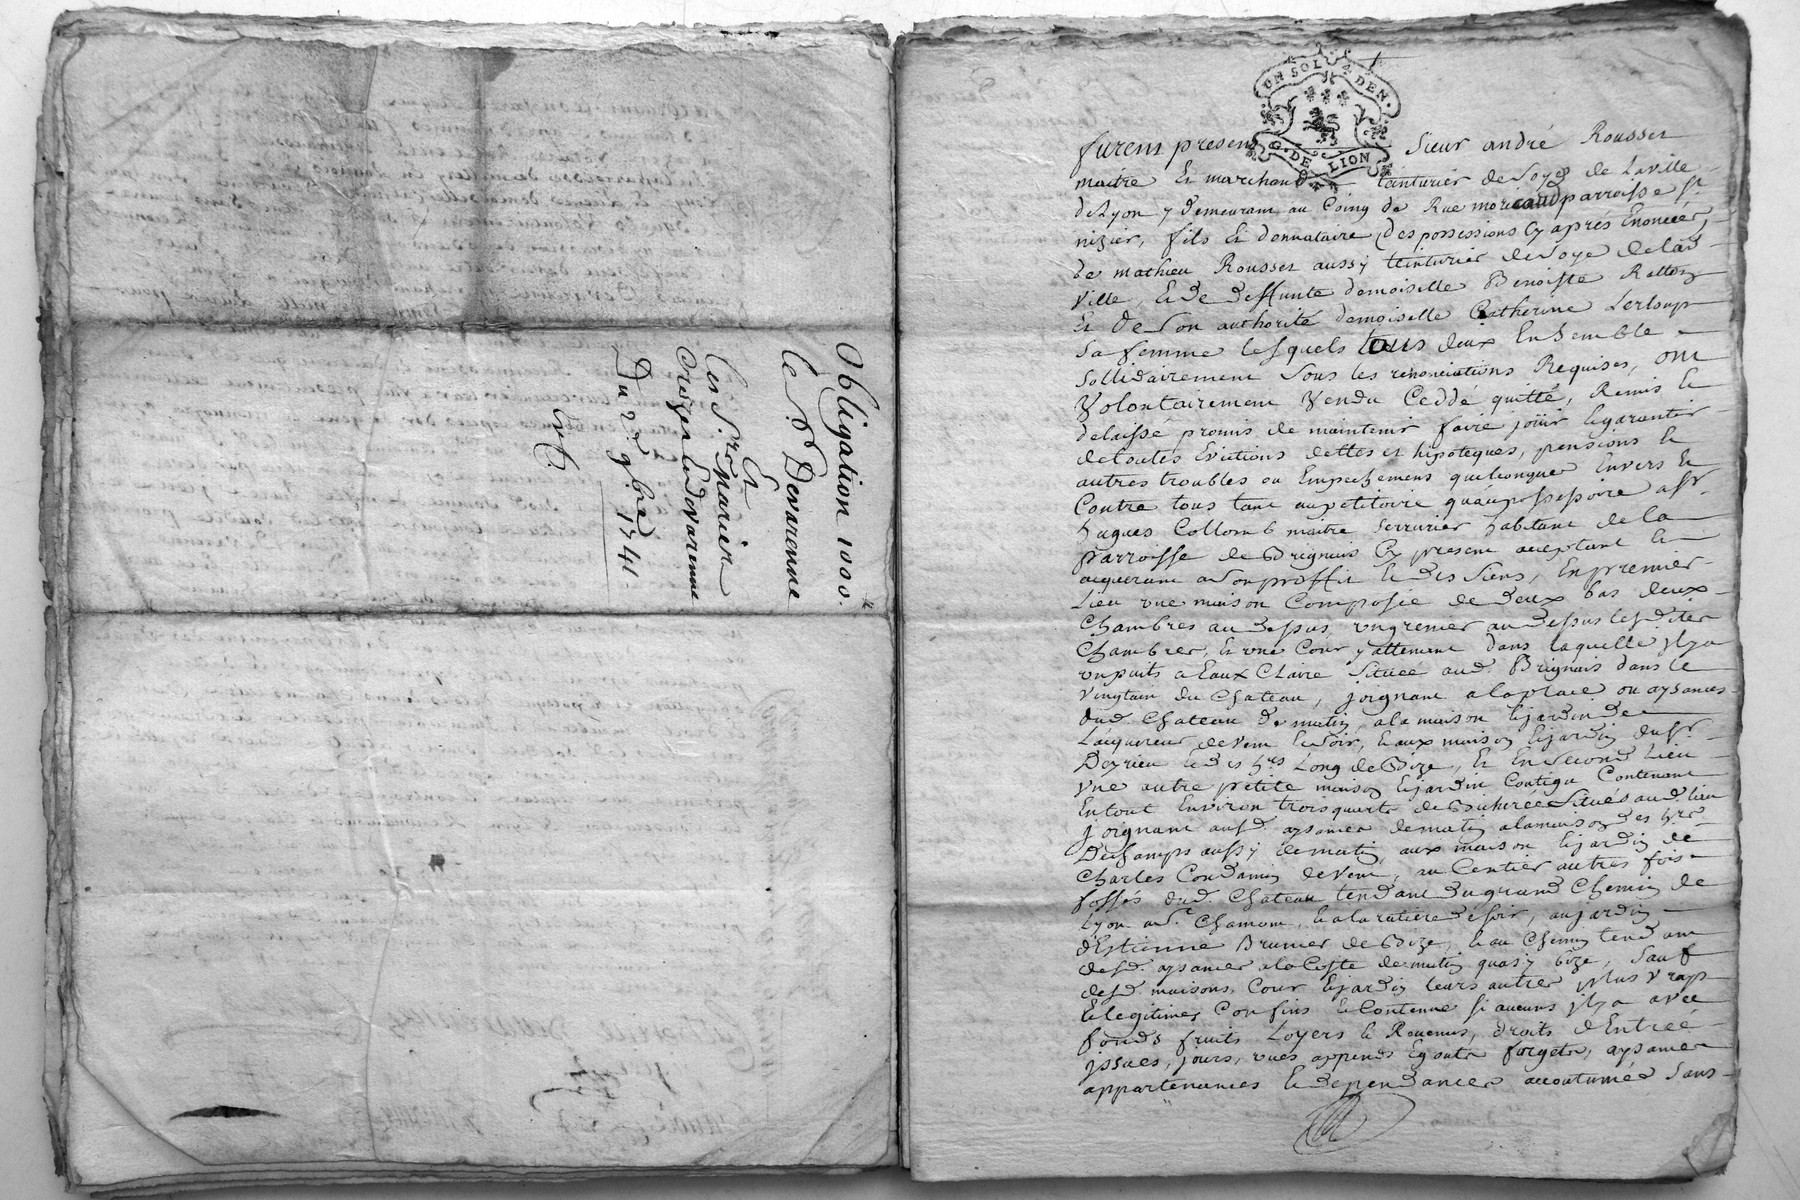 Obligation 1000.tt
le Sr Devarenne
Et
les Srs marier
creszer Ledevarenne
Du 22 9bre 1741
UN SOL 4 DEN.
G. DE LION
furent presens Sieur andré Rousset
maitre Et marchand teinturier de Soyes de Laville
de Lyon y demeurant au Coing de Rue moricaud parroisse St
nizier, fils Et donnataire des possessions Cy aprés Enoncées,
de mathieu Rousset aussy teinturier de Soye de lad
ville, Et de deffunte demoiselle Benoiste
Et de Son authorité demoiselle Catherine Lerloup
Sa femme lesquels tous deux Ensemble
Sollidairement Sous les renonciations Requises, ont
Volontairement Vendu Ceddé quitté, Remis Et
delaissé promis de maintenir faire joüir Et garantir
de toutes Evictions dettes et hipoteques, pensions Et
autres troubles ou Empechemens quelconques Envers Et
Contre tous tant au petitoire quau possessoire a Sr
hugues Collomb maitre Serrurier habitant de la
Parroisse de Brignais Cy present acceptant Et
acquerant a Son proffit Et des Siens, En premier
Lieu une maison Composée de deux bas deux
Chambres au dessus, un grenier au dessus lesdites
Chambres, Et une Cour y attenant dans laquelle jl y a
un puits a Eaux Claire Situéé aud. Brignais dans le
Vingtain du Chateau, joignant a la place ou aysances
dud. Chateau de matin, a la maison Et jardin de
Lacquereur de vent Et Soir, Et aux maison Et jardin du Sr
Deyrieu Et des hrs Long de Bize, Et En Second Lieu
une autre petite maison Et jardin Contigu Contenant
En tout Environ trois quarts de Bicherée Situés aud. lieu
joignant ausd. aysances de matin a la maison des hrs
Dechamps aussy de matin, aux maison Et jardin de
Charles Condamin de vent, au Centier autres fois
fossés dud. Chateau tendant du grand Chemin de
Lyon a St Chamont, Et a la ratiere de Soir, au jardin
d'Estienne Brunier de Bize, Et au Chemin tendant
desd. aysances a la Coste de matin quasy bize, Sauf
desd. maisons, Cour Et jardin leurs autres plus Vrays
Et legitimes Confins Et Contenue Si aucuns jl y a avec
fonds fruits Loyers Et Revenus, droits d'Entréé
jssues, jours, vues, appends Egouts forgets, aysances
appartenances Et dependances accoutumés Sans